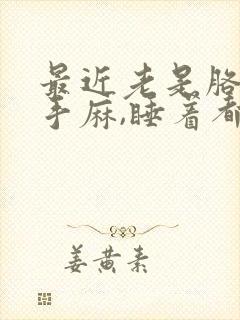 最近老是胳
手麻,睡着都
姜黄素